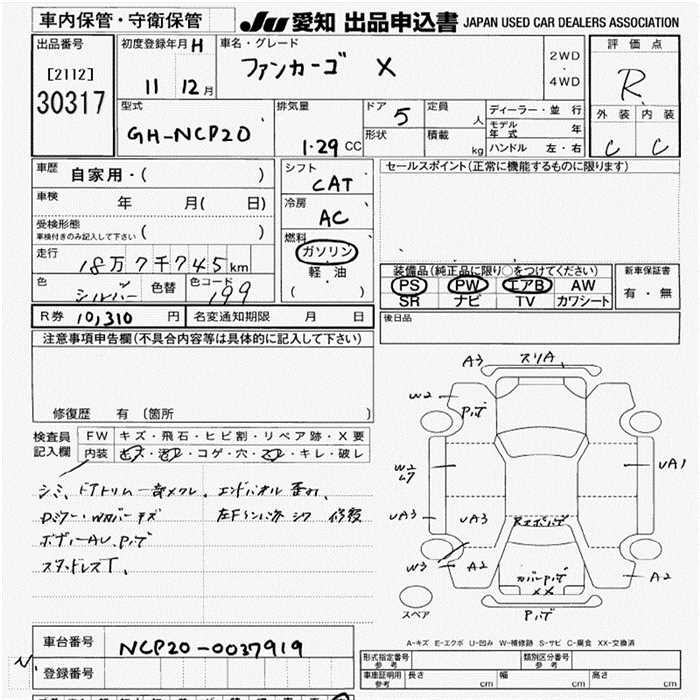 車内保管・守衛保管
JU 愛知 出品申込書 JAPAN USED CAR DEALERS ASSOCIATION
出品番号
[2112]
30317
初度登録年月 H
11 12月
車名・グレード
ファンカーゴ X
2WD
・
4WD
評価点
R
外装 内装
C C
型式
GH-NCP20
排気量
1.29 CC
ドア 5
形状
定員 人
積載 kg
ディーラー・並行
モデル年式 年
ハンドル 左・右
車歴 自家用・( )
車検 年 月( 日)
受検形態
車検付きのみ記入して下さい ( )
走行 18万7千745km
色 シルバー 色替 色コード 199
シフト
CAT
冷房
AC
燃料
ガソリン
・
軽油
( )
セールスポイント(正常に機能するものに限ります)
装備品(純正品に限り○をつけてください)
PS PW エアB AW
SR ナビ TV カワシート
新車保証書
有・無
R券 10,310 円 名変通知期限 月 日
後日品
注意事項申告欄(不具合内容等は具体的に記入して下さい)
修復歴 有(箇所 )
検査員
記入欄
FW キズ・飛石・ヒビ割・リペア跡・X要
内装 キズ・汚レ・コゲ・穴・スレ・キレ・破レ
シミ、ドアトリム一部メクレ、エンドパネル歪み、
Dミラー・WWバーキズ
修復
ボディーAU、Pッデ
スタッドレスT、
A3 スリA
W2
Pッデ
W2
UA1
UA3
UA3
W3
A2
A2
XX
Pッデ
スペア
A-キズ E-エクボ U-凹み W-補修跡 S-サビ C-腐食 XX-交換済
車台番号 NCP20-0037919
登録番号
形式指定番号
参考
類別区分番号
参考
車庫証明用
参考
長さ cm 幅 cm 高さ cm